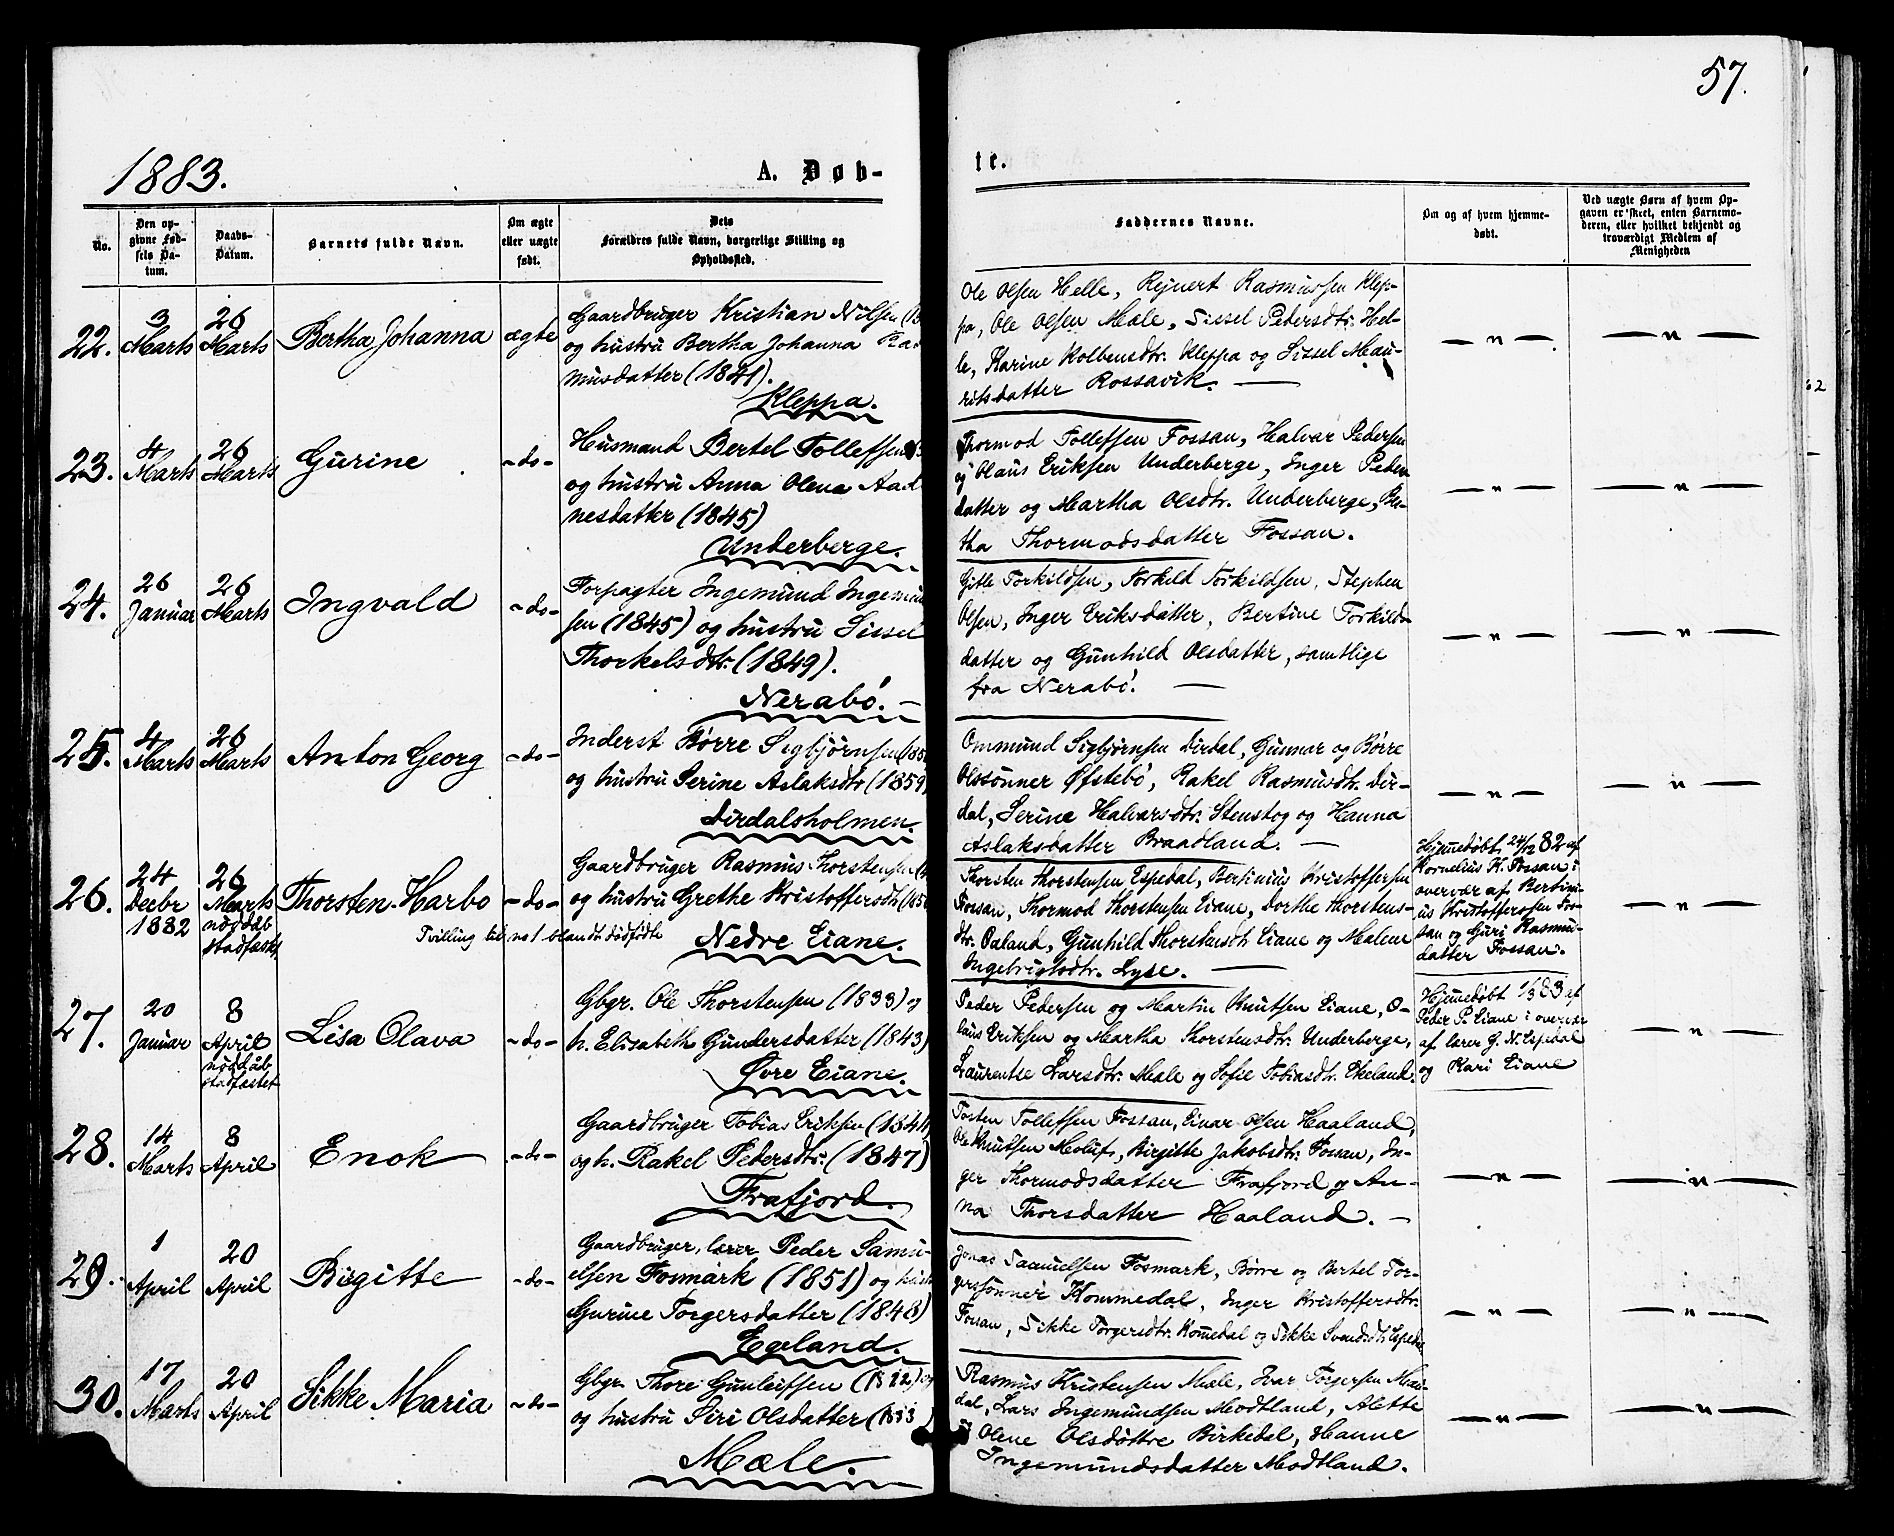 57.
1883.
A. Døb-
te.
No.
Den op-
givne Fød-
sels Da-
tum.
Daabs-
Datum.
Barnets fulde Navn.
Om ægte
eller uægte
født.
Dets
Forældres fulde Navn, borgerlige Stilling og
Opholdssted.
Faddernes Navne.
Om og af hvem hjemme-
døbt.
Ved uægte Børn af hvem Op-
gaven er skeet, enten Barnemo-
deren, eller hvilket bekjendt og
troværdigt Medlem af
Menigheden
22.
3
Marts
26
Marts
Bertha Johanna
ægte
Gaardbruger Kristian Nilsen
og hustru Bertha Johanna Ras
musdatter (1841).
Kleppa.
Ole Olsen Helle, Rejnert Rasmussen Klep-
pa, Ole Olsen Mæle, Sissel Pedersdtr. Hel-
le, Karine Kolbensdtr. Kleppa og Sissel Mau-
ritsdatter Rossavik. —
— " —
— " —
23.
4
Marts
26
Marts
Gurine
-do-
Husmand Bertel Tollefsen
og hustru Anna Olena Aad
nesdatter (1845)
Underberge.
Thormod Tollefsen Fossan, Halvar Pedersen
og Olaus Eriksen Underberge, Inger Peders
datter og Martha Olsdtr. Underberge, Ber-
tha Thormodsdatter Fossan.
— " —
— " —
24.
26
Januar
26
Marts
Ingvald
-do-
Forpagter Ingemund Ingemun
sen (1845) og hustru Sissel
Thorkelsdtr. (1849).
Nerabø. —
Gitle Torkildsen, Torkild Torkildsen, Stephen
Olsen, Inger Eriksdatter, Bertine Torkilds-
datter og Gunhild Olsdatter, samtlige
fra Nerabø. —
— " —
— " —
25.
4
Marts
26
Marts
Anton Georg
-do-
Inderst Børre Sigbjørnsen (185
og hustru Serine Aslaksdtr (1859)
Dirdalsholmen.
Ommund Sigbjørnsen Dirdal, Gunnar og Børre
Olssønner Øfstebø, Rakel Rasmusdtr. Dir-
dal, Serine Halvarsdtr. Stenstog og Hanna
Aslaksdatter Braadland. —
— " —
— " —
26.
24
Decbr
1882
26
Marts
nøddåb
stadfæstet
Thorsten Harbo
-do-
Tvilling til no 1 blandt dødfødte
Gaardbruger Rasmus Thorstensen
og hustru Grethe Kristoffersdtr (185
Nedre Eiane.
Thorsten Thorstensen Espedal, Bertinius Kristoffersen
Fossan, Thormod Thorstensen Eiane, Dorthe Thorstens-
dtr. Øaland, Gunhild Thorstensdtr Eiane og Malene
Ingebrigtsdtr. Lyse. —
Hjemmedøbt 24/12 82 af
Kornelius K. Fossan i
overvær af Bertini-
us Kristoffersen Fos-
san og Guri Rasmus-
datter Fossan.
— " —
27.
20
Januar
8
April
nøddåb
stadfæstet
Lisa Olava
-do-
Gbgr. Ole Thorstensen (1833) og
h. Elisabeth Gundersdatter (1843)
Øvre Eiane.
Peder Pedersen og Martin Knutsen Eiane, O-
laus Eriksen og Martha Thorstensdtr. Underberge,
Laurentse Larsdtr. Mæle og Sofie Tobiasdtr. Ekeland.
Hjemmedøbt 1/3 83 af
Peder P. Eiane i overvær
af lærer G. N. Espedal
og Kari Eiane
— " —
28.
14
Marts
8
April
Enok
-do-
Gaardbruger Tobias Eriksen (1844)
og h. Rakel Pedersdtr. (1847)
Frafjord.
Tosten Tollefsen Fossan, Einar Olsen Haaland,
Ole Knutsen Molüf, Birgitte Jakobsdtr. Fossan, In-
ger Thormodsdatter Frafjord og An-
na Thorsdatter Haaland. —
— " —
— " —
29.
1
April
20
April
Birgitte
-do-
Gaardbruger, lærer Peder Samu-
elsen Fosmark (1851) og
Gurine Torgersdatter (1848)
Egeland.
Jonas Saamuelsen Fosmark, Børre og Bertel Tor-
gerssønner Kommedal, Inger Kristoffersdtr.
Fossan, Sikke Torgersdtr. Komedal og Sikke Svendsdtr. Espedal
— " —
— " —
30.
17
Marts
20
April
Sikke Maria
-do-
Gbgr. Thore Gunleifsen og
og hustru Siri Olsdatter
Mæle.
Rasmus Kristensen Mæle, Ivar Torgersen Mau-
dal, Lars Ingemundsen Modtland, Alette
og Olene Olsdøttre Birkedal, Hanne
Ingemundsdatter Modtland.
— " —
— " —